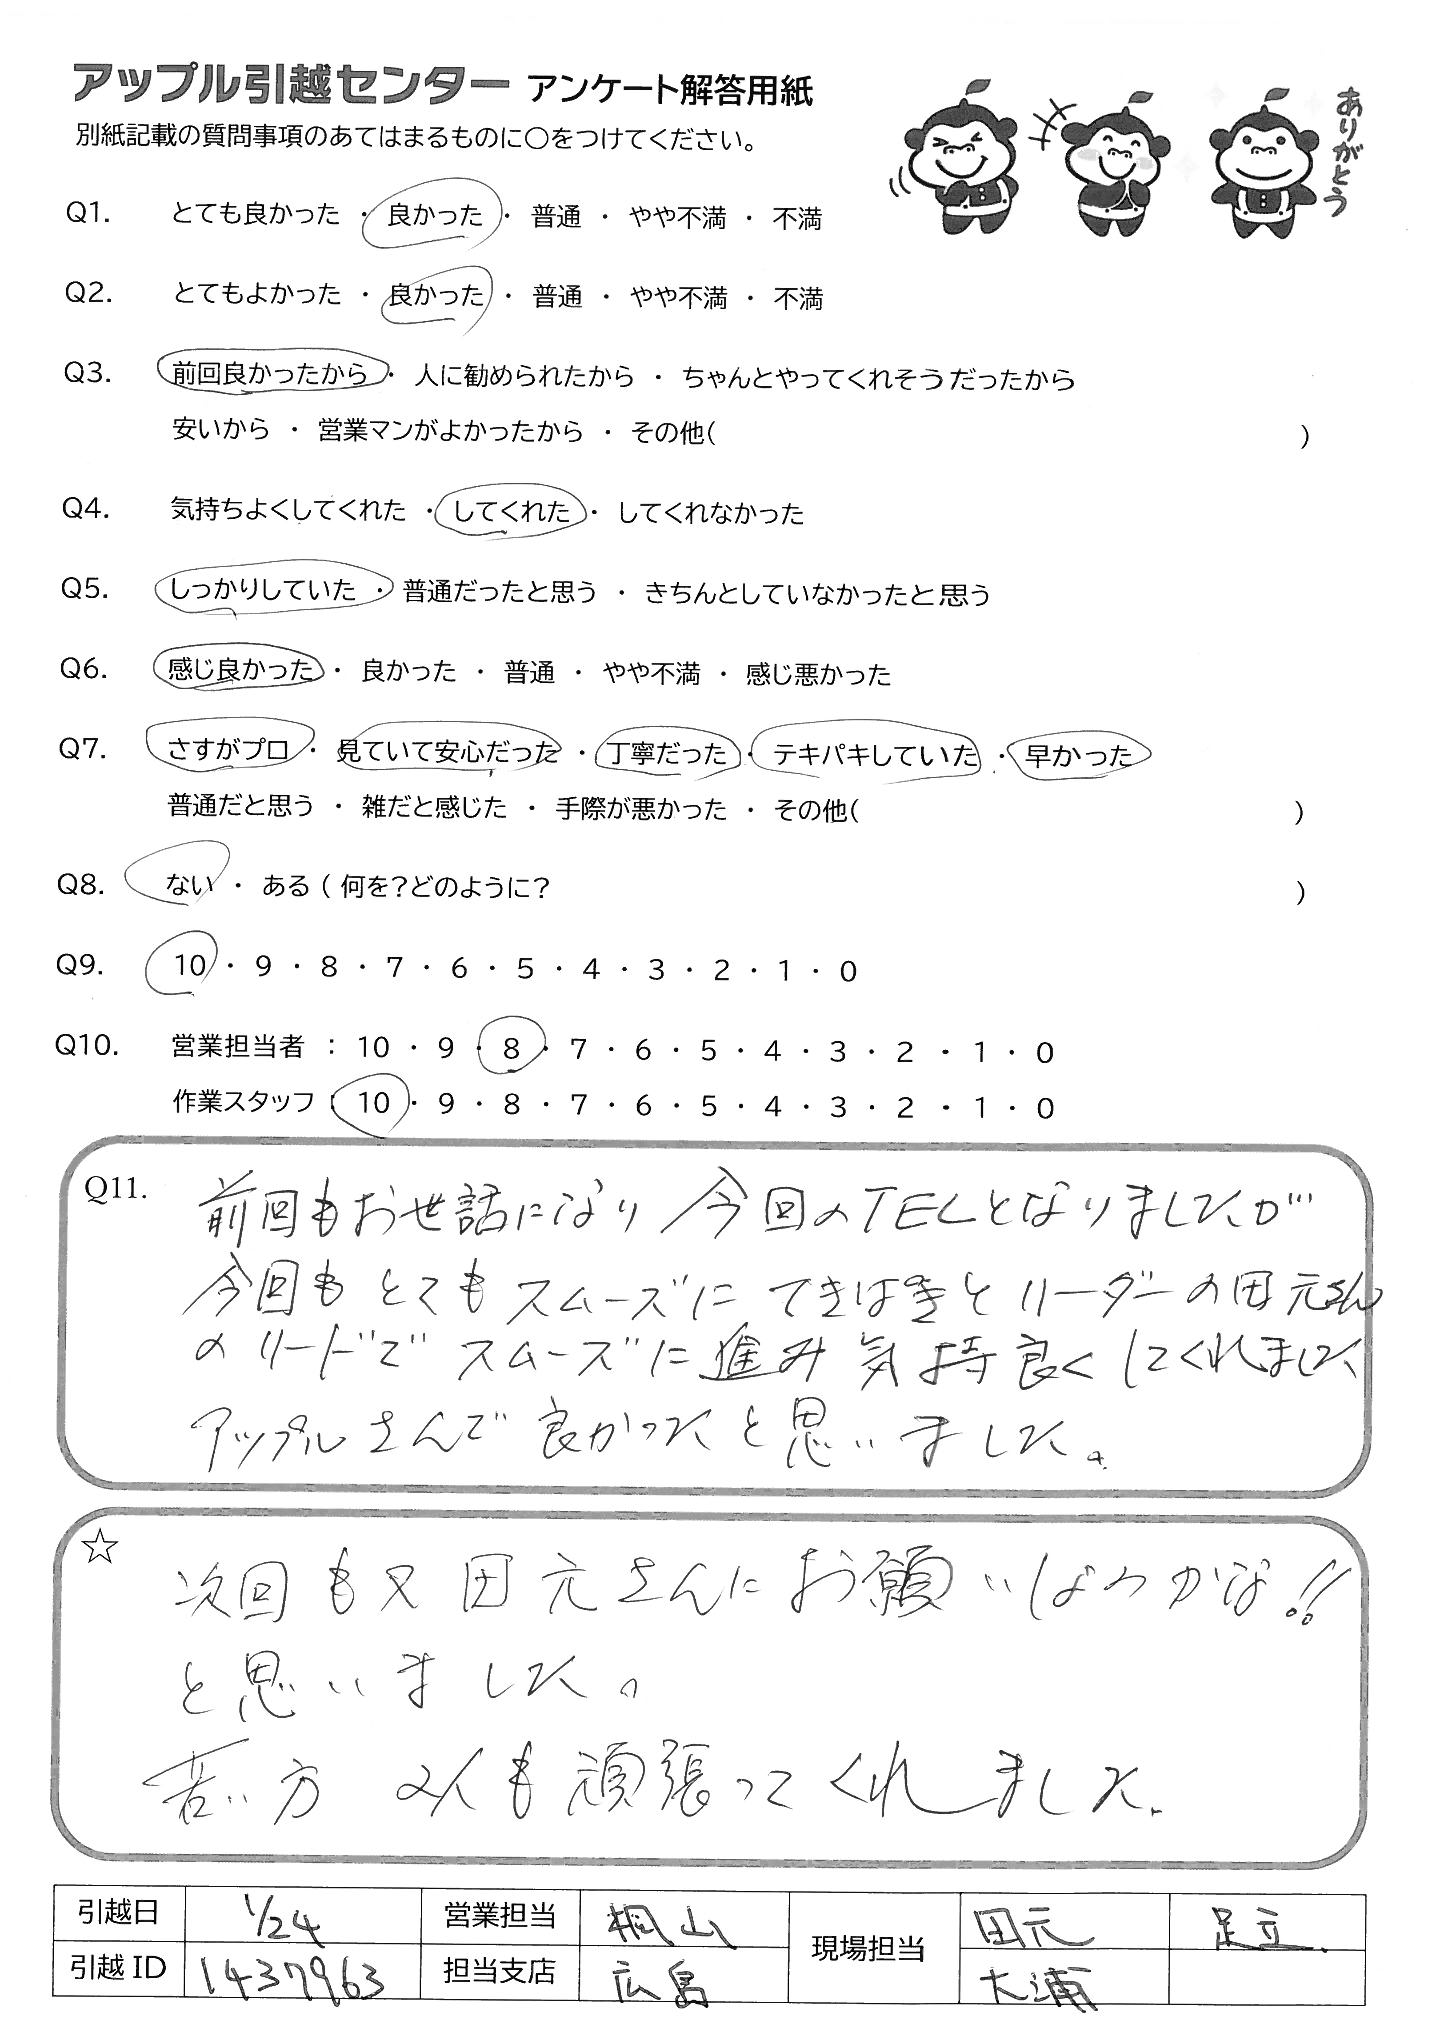 アップル引越センター アンケート解答用紙
別紙記載の質問事項のあてはまるものに○をつけてください。
ありがとう
Q1. とても良かった ・ 良かった ・ 普通 ・ やや不満 ・ 不満
Q2. とてもよかった ・ 良かった ・ 普通 ・ やや不満 ・ 不満
Q3. 前回良かったから ・ 人に勧められたから ・ ちゃんとやってくれそうだったから
安いから ・ 営業マンがよかったから ・ その他( )
Q4. 気持ちよくしてくれた ・ してくれた ・ してくれなかった
Q5. しっかりしていた ・ 普通だったと思う ・ きちんとしていなかったと思う
Q6. 感じ良かった ・ 良かった ・ 普通 ・ やや不満 ・ 感じ悪かった
Q7. さすがプロ ・ 見ていて安心だった ・ 丁寧だった ・ テキパキしていた ・ 早かった
普通だと思う ・ 雑だと感じた ・ 手際が悪かった ・ その他( )
Q8. ない ・ ある ( 何を?どのように? )
Q9. 10 ・ 9 ・ 8 ・ 7 ・ 6 ・ 5 ・ 4 ・ 3 ・ 2 ・ 1 ・ 0
Q10. 営業担当者 : 10 ・ 9 ・ 8 ・ 7 ・ 6 ・ 5 ・ 4 ・ 3 ・ 2 ・ 1 ・ 0
作業スタッフ : 10 ・ 9 ・ 8 ・ 7 ・ 6 ・ 5 ・ 4 ・ 3 ・ 2 ・ 1 ・ 0
Q11. 前回もお世話になり今回のTELとなりましたが
今回もとてもスムーズにてきぱきとリーダーの田元さん
のリードでスムーズに進み気持良くしてくれました
アップルさんで良かったと思いました。
☆ 次回も又田元さんにお願いしようかな!!
と思いました。
若い方2人も頑張ってくれました.
引越日 1/24 営業担当 桐山 現場担当 田元 足立.
引越ID 1437963 担当支店 広島 大浦